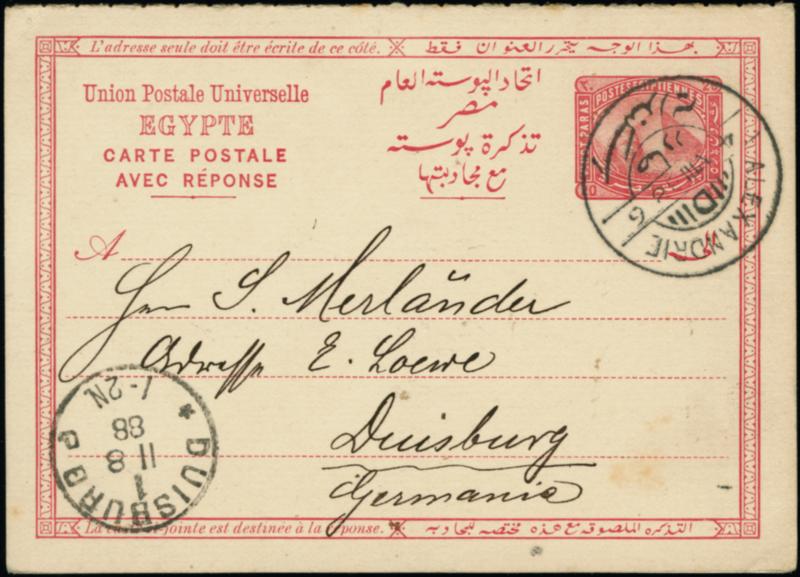 L'adresse seule doit être écrite de ce côté. بهذا الوجه يتحرر العنوان فقط
Union Postale Universelle
EGYPTE
CARTE POSTALE
AVEC RÉPONSE
اتحاد البوسته العام
مصر
تذكرة بوسته
مع مجاوبتها
POSTES EGYPTIENNES
20
PARAS
ALEXANDRIE
A
Herr S. Merländer
Adresse E. Loewe
Duisburg
Germania
DUISBURG
1
11 8
88
1-2N
La carte ci-jointe est destinée à la réponse. التذكرة الملصوقه مع هذه مختصه للمجاوبة